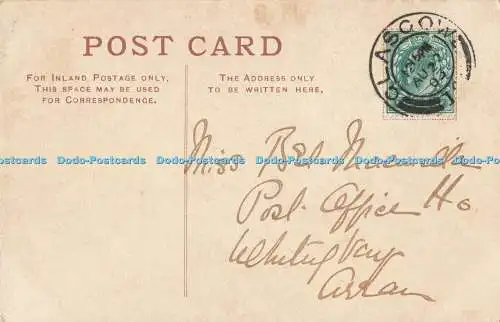 POST CARD
FOR INLAND POSTAGE ONLY,
THIS SPACE MAY BE USED
FOR CORRESPONDENCE.
THE ADDRESS ONLY
TO BE WRITTEN HERE.
GLASGOW
AU 2
03
Dodo-Postcards Dodo-Postcards Dodo-Postcards Dodo-Postcards
Miss Bel
Post Office Ho
Whiting Bay
Arran